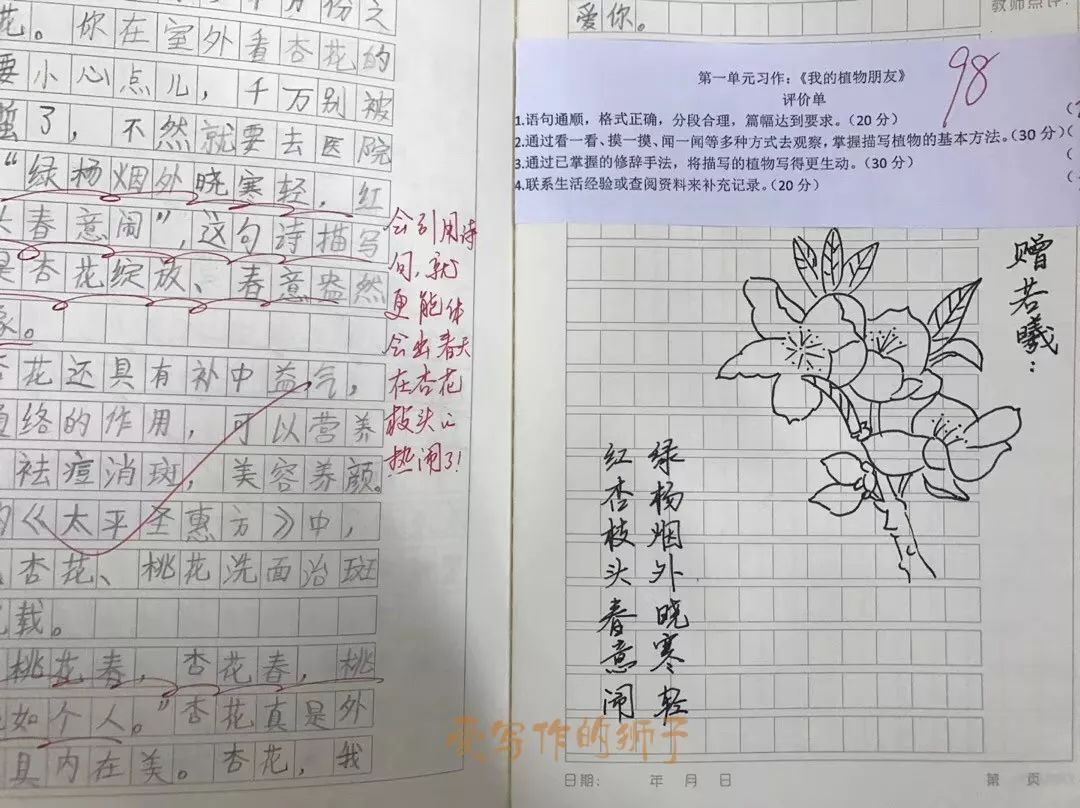 花。你在室外看杏花的
要小心点儿，千万别被
蜇了，不然就要去医院
“绿杨烟外晓寒轻，红
头春意闹”，这句诗描写
是杏花绽放、春意盎然
象。
杏花还具有补中益气，
络的作用，可以营养
祛痘消斑，美容养颜。
的《太平圣惠方》中，
杏花、桃花洗面治斑
载。
桃花春，杏花春，桃
如个人。”杏花真是外
具内在美。杏花，我
会引用诗
句，就
更能体
会出春天
在杏花
枝头的
热闹了！
爱你。
教师点评：
第一单元习作：《我的植物朋友》
评价单
98
1.语句通顺，格式正确，分段合理，篇幅达到要求。（20分）
2.通过看一看、摸一摸、闻一闻等多种方式去观察，掌握描写植物的基本方法。（30分）
3.通过已掌握的修辞手法，将描写的植物写得更生动。（30分）
4.联系生活经验或查阅资料来补充记录。（20分）
赠若曦：
绿杨烟外晓寒轻
红杏枝头春意闹
爱写作的狮子
日期： 年 月 日
第 页